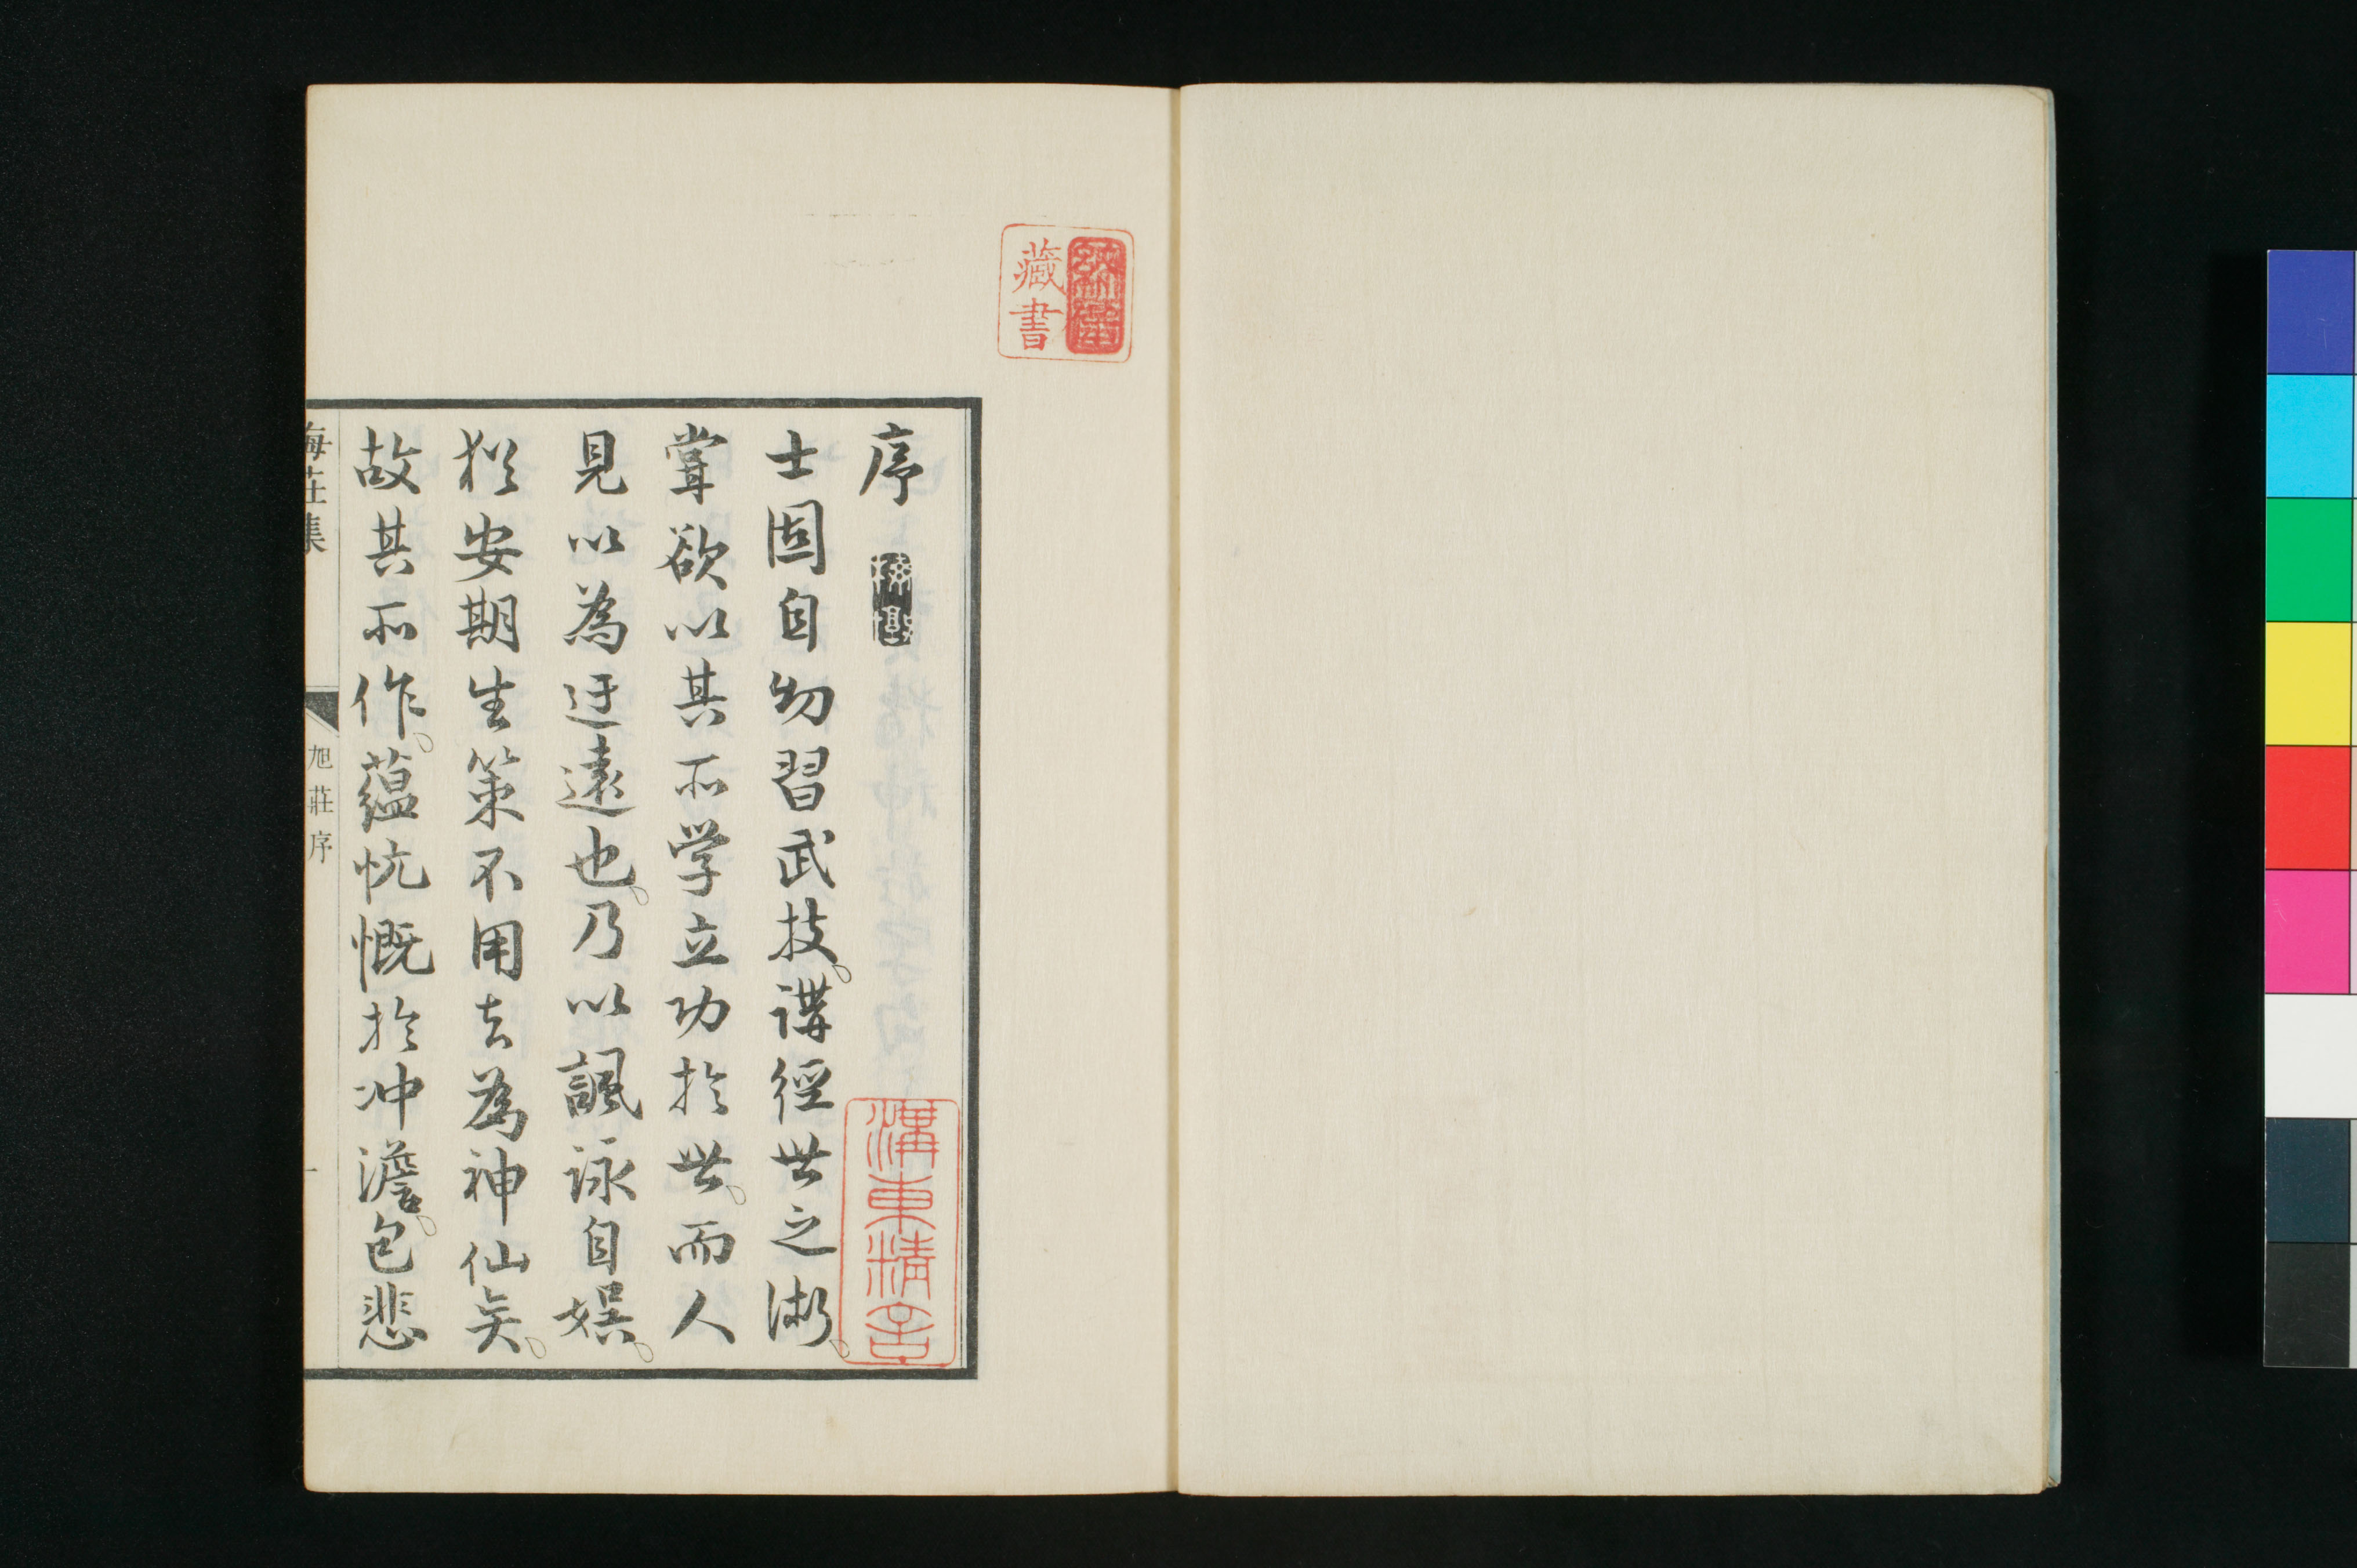 藏書
序
士固自幼習武技。講經世之術。
嘗欲以其所学立功於世。而人
見以為迂遠也。乃以諷詠自娯。
猶安期生策不用去為神仙矣。
故其所作。蘊忼慨於冲澹。包悲
溝東精舎
梅荘集
旭荘序
一